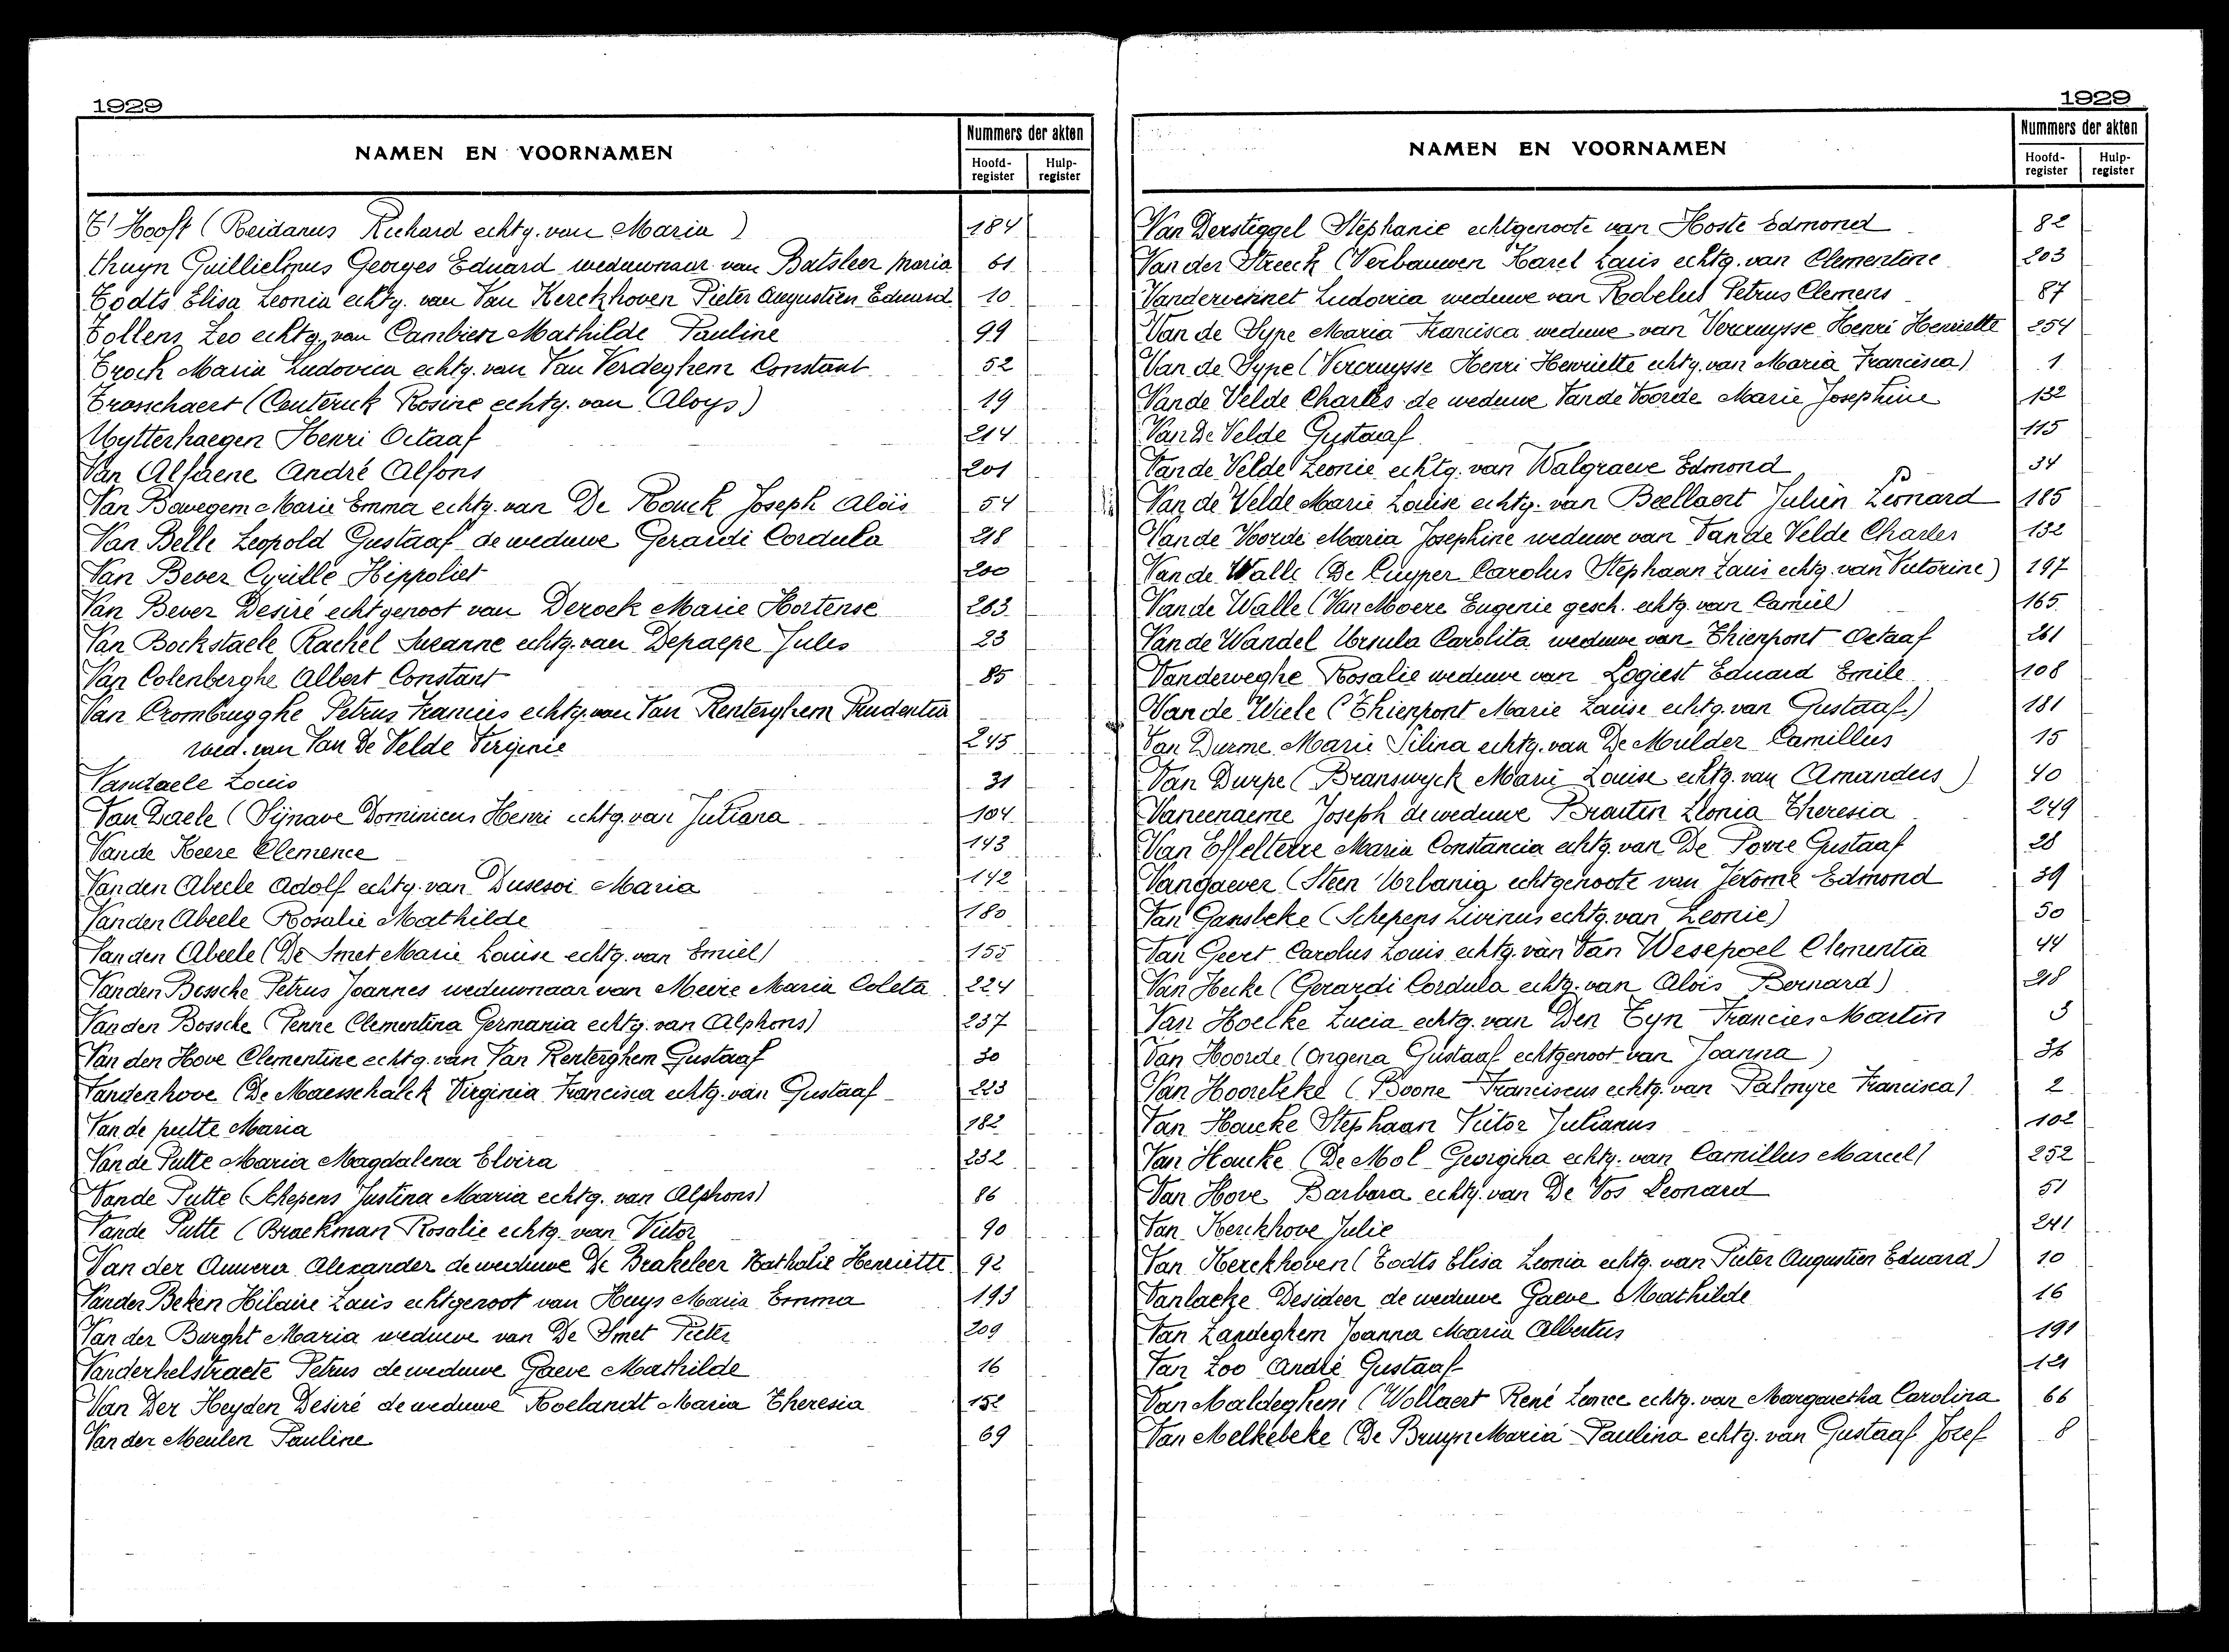 1929
NAMEN EN VOORNAMEN
Nummers der akten
Hoofd-register
Hulp-register
T' Hooft (Reidanus Richard echtg. van Maria) 184
thuyn Guillielmus Georges Eduard weduwnaar van Batsleer Maria 61
Todts Elisa Leonia echtg. van Van Kerckhoven Pieter Augustien Eduard 10
Tollens Leo echtg. van Cambien Mathilde Pauline 99
Troch Maria Ludovica echtg. van Van Verdeghem Constant 52
Trosschaert (Centerick Rosine echtg. van Aloys) 19
Uytterhaegen Henri Octaaf 214
Van Alfaene André Alfons 201
Van Bavegem Marie Emma echtg. van De Rouck Joseph Aloïs 54
Van Belle Leopold Gustaaf de weduwe Gerardi Cordula 218
Van Bever Cyrille Hippoliet 200
Van Bever Desiré echtgenoot van Derock Marie Hortense 263
Van Bockstaele Rachel Suzanne echtg. van Depaepe Jules 23
Van Colenberghe Albert Constant 85
Van Crombrugghe Petrus Francies echtg. van Van Renterghem Prudentia
wed. van Van De Velde Virginie 245
Vandaele Louis 31
Van Daele (Sijnave Dominicus Henri echtg. van Juliana 104
Vande Keere Clemence 143
Vanden Abeele Adolf echtg. van Dusesoi Maria 142
Vanden Abeele Rosalie Mathilde 180
Vanden Abeele (De Smet Marie Louise echtg. van Emiel) 155
Vanden Bossche Petrus Joannes weduwnaar van Meire Maria Coleta 224
Vanden Bossche (Penne Clementina Germania echtg. van Alphons) 237
Van den Hove Clementine echtg. van Van Renterghem Gustaaf 30
Vandenhove (De Maesschalck Virginia Francisca echtg. van Gustaaf 223
Van de putte Maria 182
Van de Putte Maria Magdalena Elvira 232
Vande Putte (Schepens Justina Maaria echtg. van Alphons) 86
Vande Putte (Braekman Rosalie echtg. van Victor 90
Van der Auwera Alexander de weduwe De Brakeleer Nathalie Henriette 92
Vander Beken Hilaire Louis echtgenoot van Huys Maria Emma 193
Van der Burght Maria weduwe van De Smet Pieter 209
Vanderhelstraete Petrus de weduwe Gaeve Mathilde 16
Van Der Heyden Desiré de weduwe Roelandt Maria Theresia 152
Van der Meulen Pauline 69
1929
NAMEN EN VOORNAMEN
Nummers der akten
Hoofd-register
Hulp-register
Van Derstiggel Stephanie echtgenoote van Hoste Edmond 82
Van der Streeck (Verbauwen Karel Louis echtg. van Clementine 203
Vandervennet Ludovica weduwe van Robelus Petrus Clemens 87
Van de Sype Maria Francisca weduwe van Vercruysse Henri Henriette 254
Van de Sype (Vercruysse Henri Henriette echtg. van Maria Francisca) 1
Vande Velde Charles de weduwe Vande Voorde Marie Josephine 132
Van De Velde Gustaaf 115
Vande Velde Leonie echtg. van Walgraeve Edmond 34
Van de Velde Marie Louise echtg. van Beellaert Julien Leonard 185
Vande Voorde Maria Josephine weduwe van Vande Velde Charles 132
Van de Walle (De Cuyper Carolus Stephaan Louis echtg. van Victorine) 197
Vande Walle (Van Moere Eugenie gesch. echtg. van Camiel) 165
Vande Wandel Ursula Carolita weduwe van Thienpont Octaaf 261
Vanderweghe Rosalie weduwe van Logiest Eduard Emile 108
Van de Wiele (Thienpont Marie Louise echtg. van Gustaaf) 181
Van Durme Marie Silina echtg. van De Mulder Camillus 15
Van Durpe (Branswyck Marie Louise echtg. van Amandus) 40
Vaneenaeme Joseph de weduwe Brautin Leonia Theresia 249
Van Effelterre Maria Constancia echtg. van De Porre Gustaaf 28
Vangaever (Steen Urbania echtgenoote van Jérome Edmond 39
Van Gansbeke (Schepens Livinus echtg. van Leonie) 50
Van Geert Carolus Louis echtg. van Van Wesepoel Clementia 44
Van Hecke (Gerardi Cordula echtg. van Aloïs Bernard) 218
Van Hoecke Lucia echtg. van Den Tyn Francies Martin 3
Van Hoorde (Ongena Gustaaf echtgenoot van Joanna) 36
Van Hoorebeke (Boone Franciscus echtg. van Palmyre Francisca) 2
Van Houcke Stephaan Victor Julianus 102
Van Houcke (De Mol Georgina echtg. van Camillus Marcel) 252
Van Hove Barbara echtg. van De Vos Leonard 51
Van Kerckhove Julie 241
Van Kerckhoven (Todts Elisa Leonia echtg. van Pieter Augustien Eduard) 10
Vanlacke Desideer de weduwe Gaeve Mathilde 16
Van Landeghem Joanna Maria Albertus 191
Van Loo André Gustaaf 121
Van Maldeghem (Wollaert René Leonce echtg. van Margaretha Carolina 66
Van Melkebeke (De Bruyn Maria Paulina echtg. van Gustaaf Jozef 8